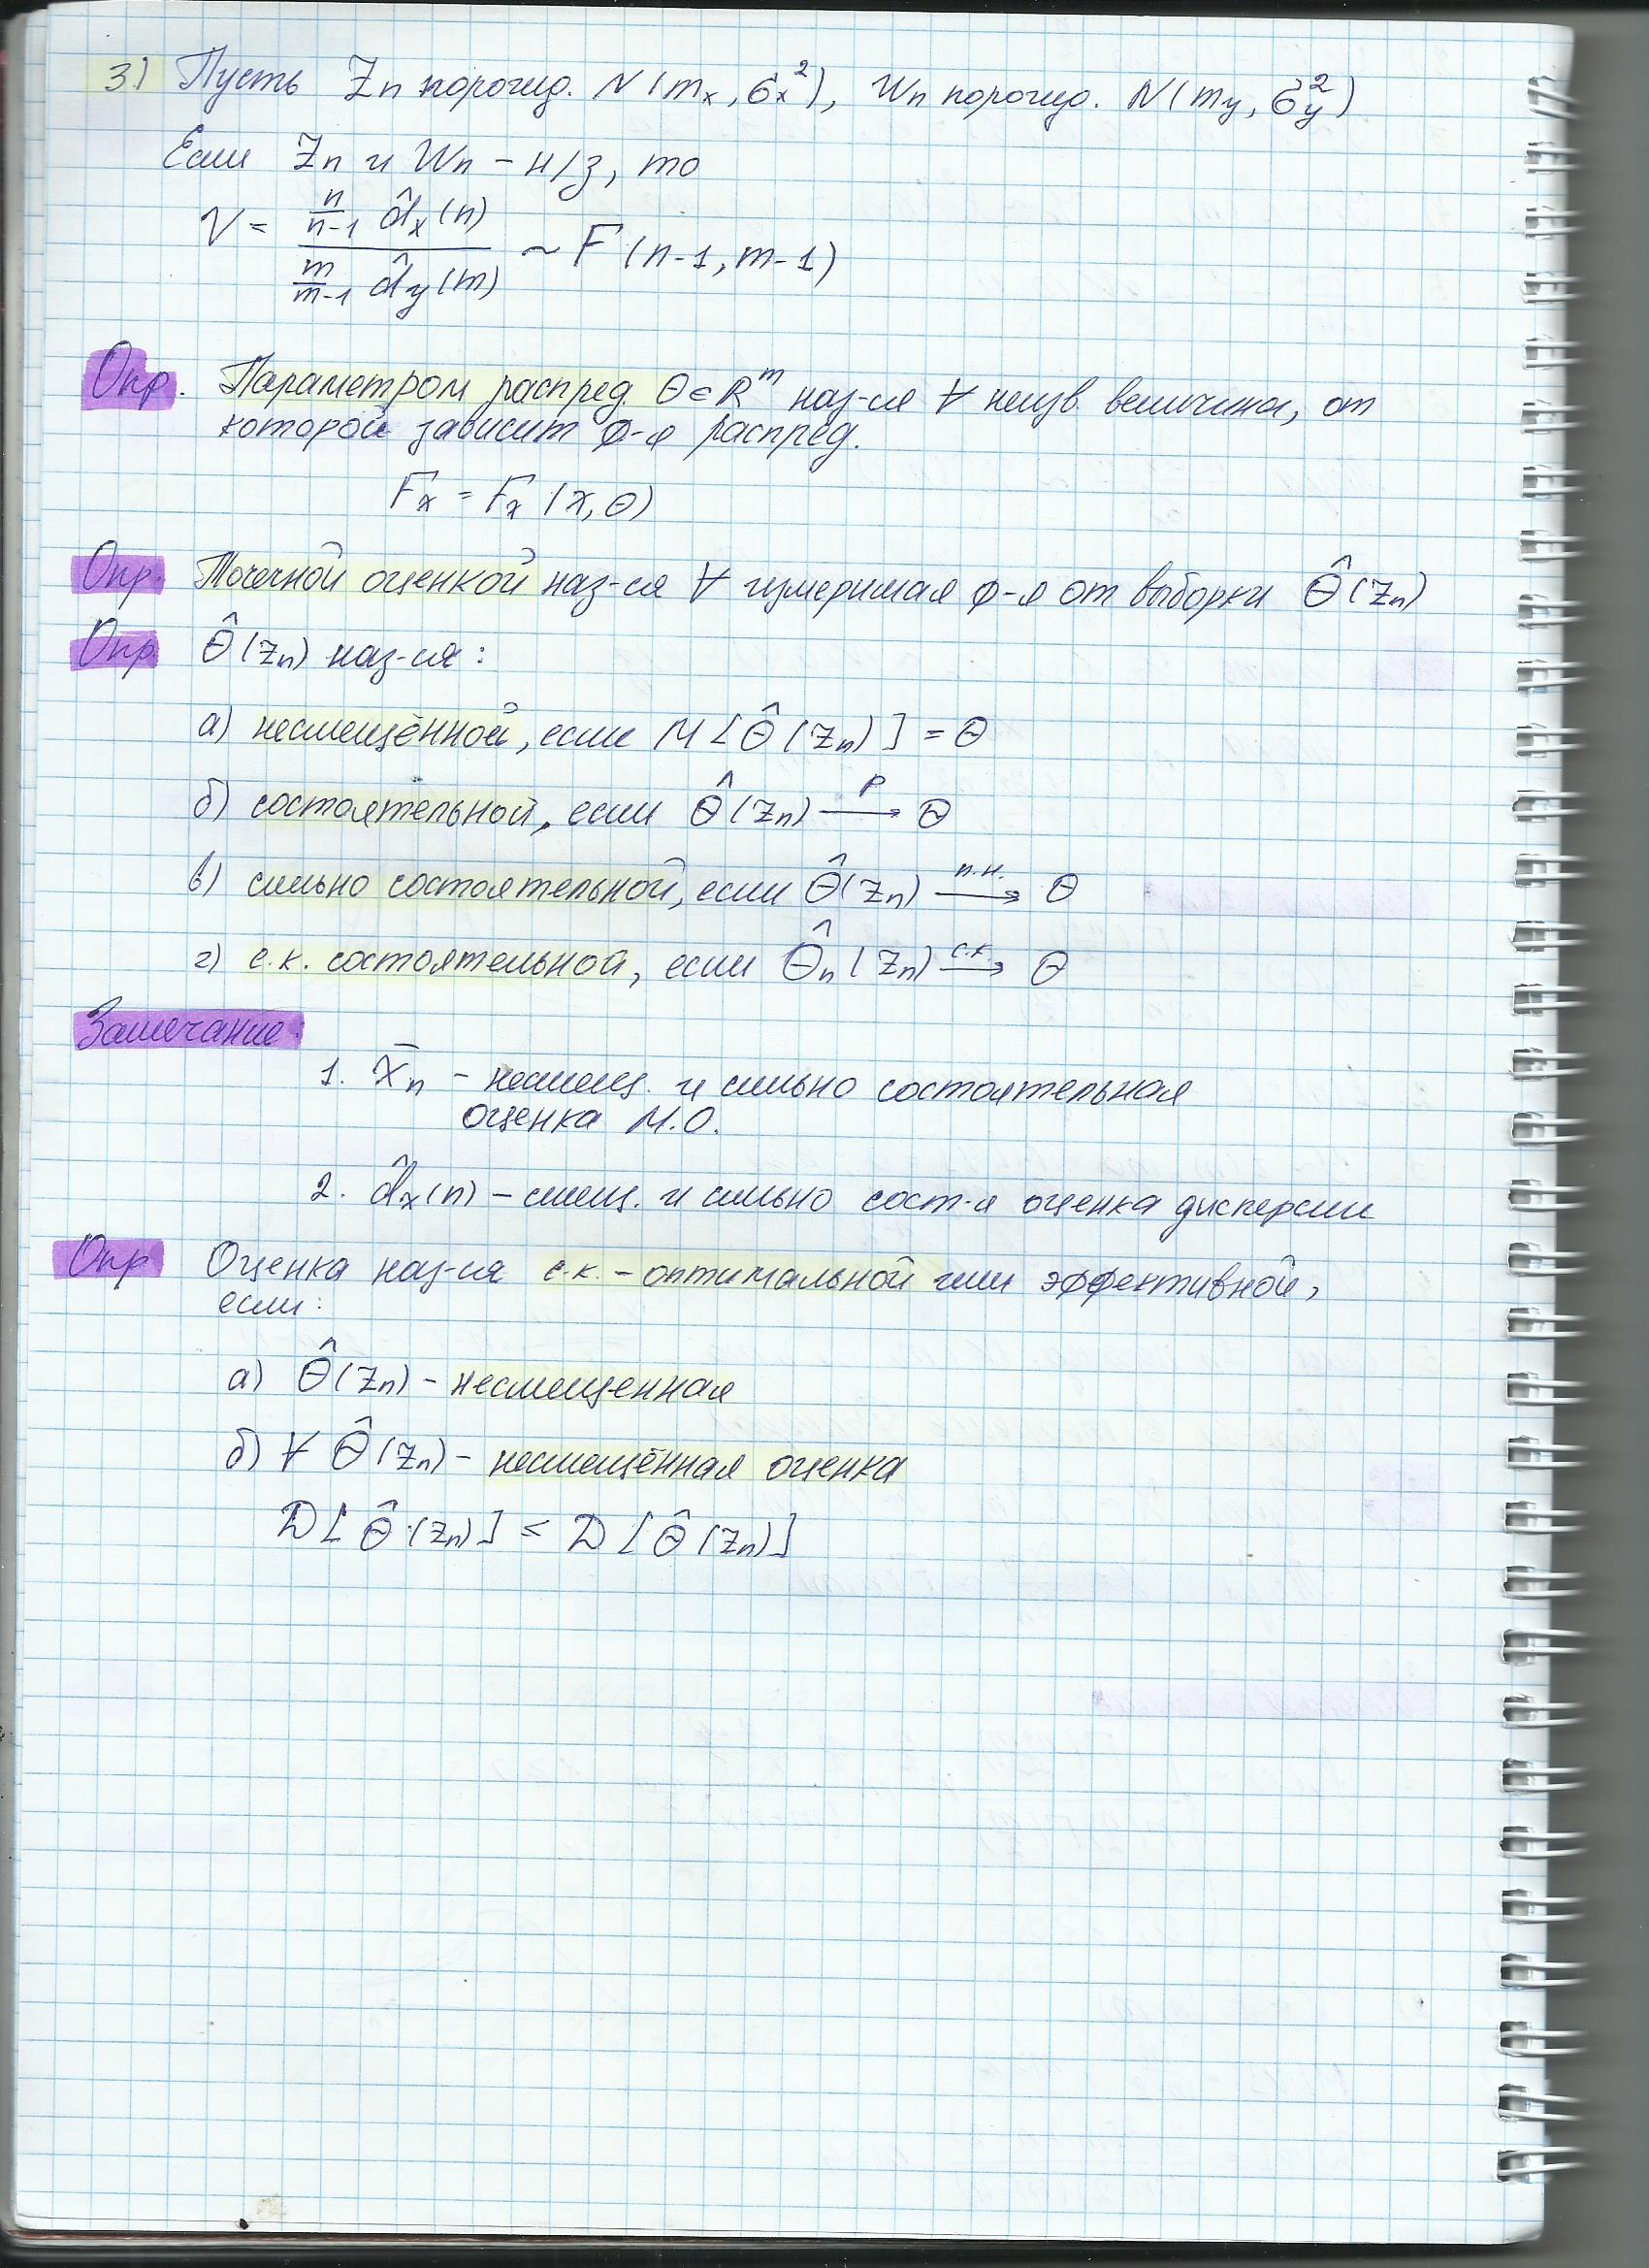 3) Пусть Zn порожд. N(mx, σx²), Wn порожд. N(my, σy²)
Если Zn и Wn – н/з, то
V = (n/(n-1) d̂x(n)) / (m/(m-1) d̂y(m)) ~ F(n-1, m-1)
Опр. Параметром распред. Θ∈R^m наз-ся ∀ неизв. величина, от
которой зависит ф-я распред.
Fx = Fx (x, Θ)
Опр. Точечной оценкой наз-ся ∀ измеримая ф-я от выборки Θ̂(Zn)
Опр. Θ̂(Zn) наз-ся:
а) несмещённой, если M[Θ̂(Zn)] = Θ
б) состоятельной, если Θ̂(Zn) —P→ Θ
в) сильно состоятельной, если Θ̂(Zn) —п.н.→ Θ
г) с.к. состоятельной, если Θ̂n(Zn) —с.к.→ Θ
Замечание:
1. X̄n – несмещ. и сильно состоятельная
оценка М.О.
2. d̂x(n) – смещ. и сильно сост-я оценка дисперсии
Опр Оценка наз-ся с.к. – оптимальной или эффективной,
если:
а) Θ̂(Zn) – несмещенная
б) ∀ Θ̂(Zn) – несмещённая оценка
D[Θ̂(Zn)] ≤ D[Θ̂(Zn)]